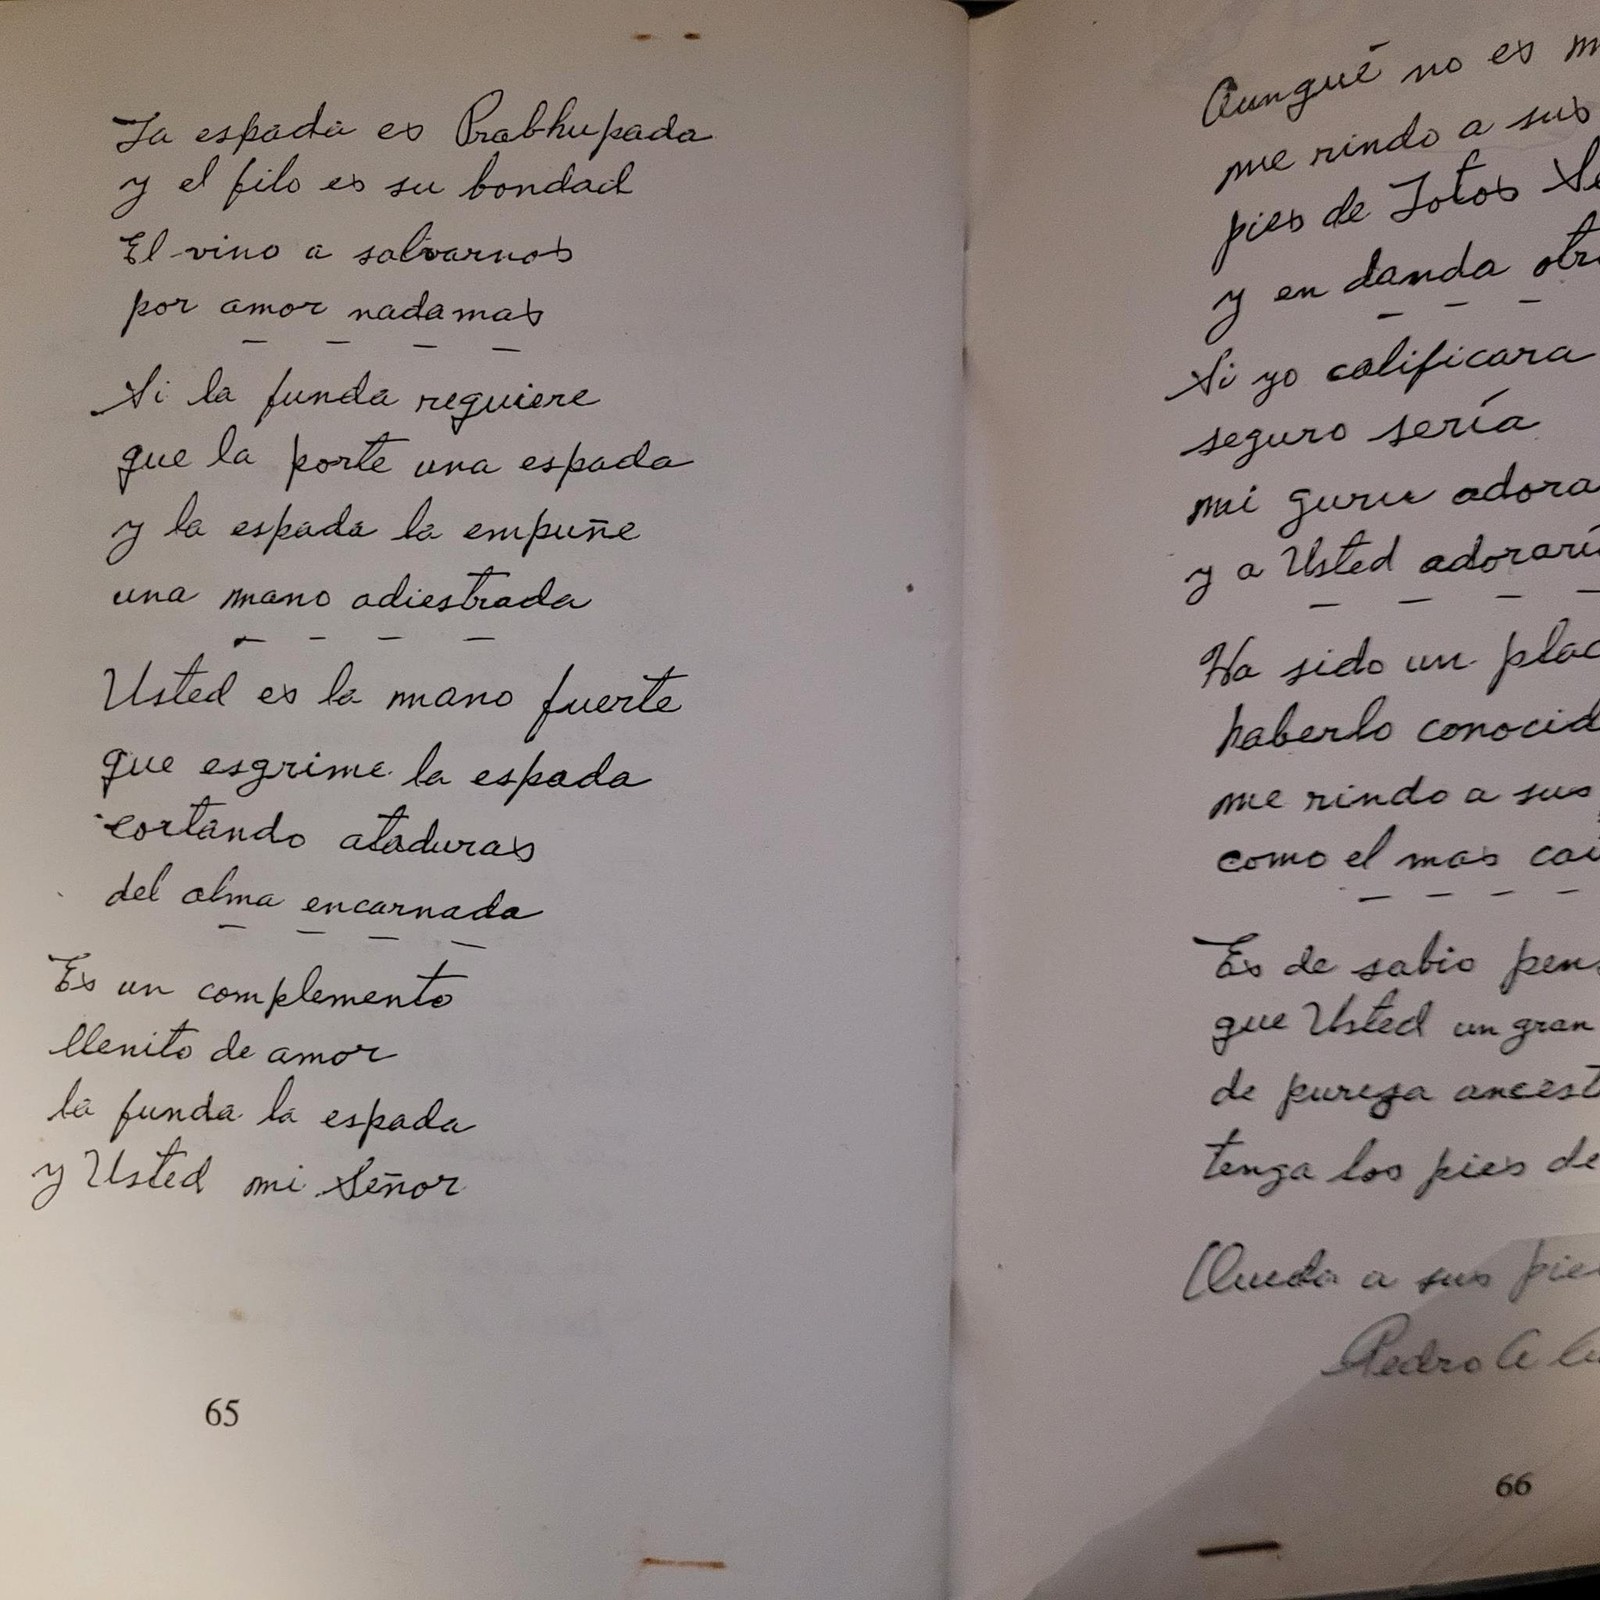 La espada es Prabhupada
y el filo es su bondad
El vino a salvarnos
por amor nadamas
Si la funda requiere
que la porte una espada
y la espada la empuñe
una mano adiestrada
Usted es la mano fuerte
que esgrime la espada
cortando ataduras
del alma encarnada
Es un complemento
llenito de amor
la funda la espada
y Usted mi Señor
65
Aunqué no es
me rindo a sus
pies de Lotos
y en danda
Si yo calificara
seguro sería
mi guru
y a Usted
Ha sido un
haberlo
me rindo a sus
como el mas
Es de sabio
que Usted un gran
de pureza
tenga los pies de
Queda a sus
Pedro A
66